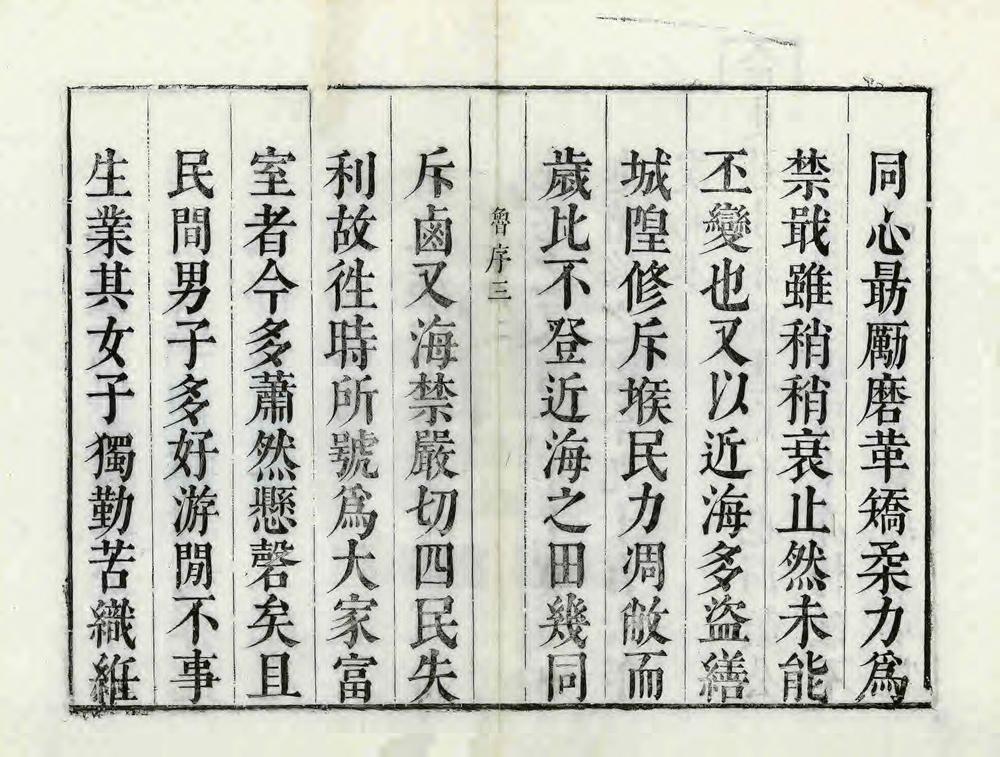 同心勗勵磨革矯柔力為
禁戢雖稍稍衰止然未能
丕變也又以近海多盜繕
城隍修斥堠民力凋敝而
歲比不登近海之田幾同
魯序三
斥鹵又海禁嚴切四民失
利故徃時所號為大家富
室者今多蕭然懸磬矣且
民間男子多好游閒不事
生業其女子獨勤苦織絍